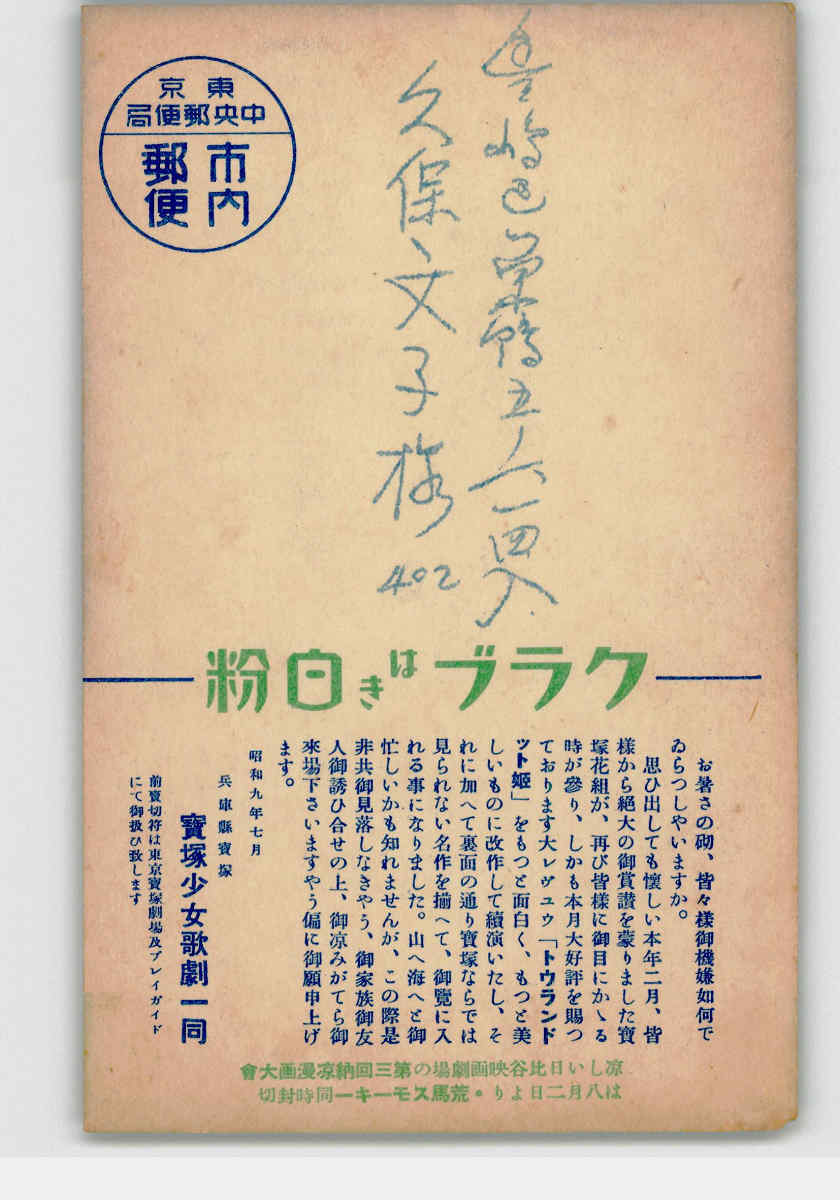 東京
中央郵便局
市内
郵便
豊嶋区巣鴨五ノ八一四
久保文子様
402
クラブはき白粉
お暑さの砌、皆々様御機嫌如何で
ゐらつしやいますか。
思ひ出しても懐しい本年二月、皆
様から絶大の御賞讃を蒙りました寶
塚花組が、再び皆様に御目にかゝる
時が參り、しかも本月大好評を賜つ
ております大レヴュウ「トウランド
ット姫」をもつと面白く、もつと美
しいものに改作して續演いたし、そ
れに加へて裏面の通り寶塚ならでは
見られない名作を揃へて、御覽に入
れる事になりました。山へ海へと御
忙しいかも知れませんが、この際是
非共御見落しなきやう、御家族御友
人御誘ひ合せの上、御凉みがてら御
來場下さいますやう偏に御願申上げ
ます。
昭和九年七月
兵庫縣寶塚
寶塚少女歌劇一同
前賣切符は東京寶塚劇場及プレイガイド
にて御扱ひ致します
凉しい日比谷映画劇場の第三回納凉漫画大會
は八月二日より・荒馬スモーキー同時封切